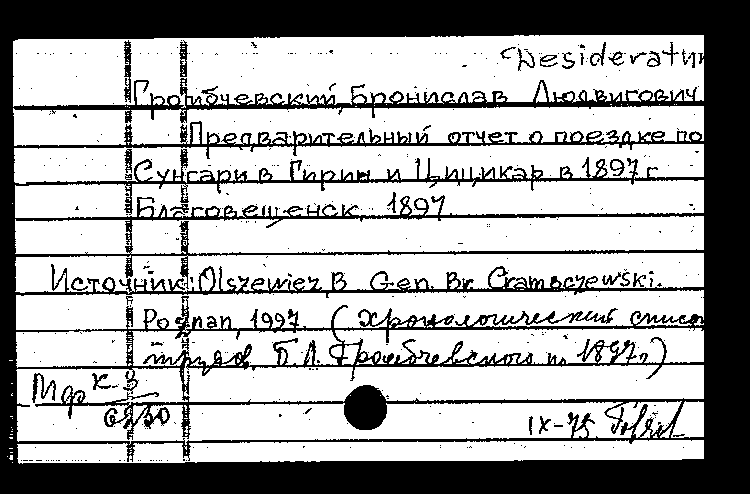 Desideratum
Громбчевский, Бронислав Людвигович
Предварительный отчет о поездке по
Сунгари в Гирин и Цицикар в 1897 г
Благовещенск, 1897
Источник: Olszewicz, B. Gen. Br. Crambczewski.
Poznan, 1927. (Хронологический список
трудов Б. Л. Громбчевского по 1897 г.)
Мф К 3
6930
IX-75